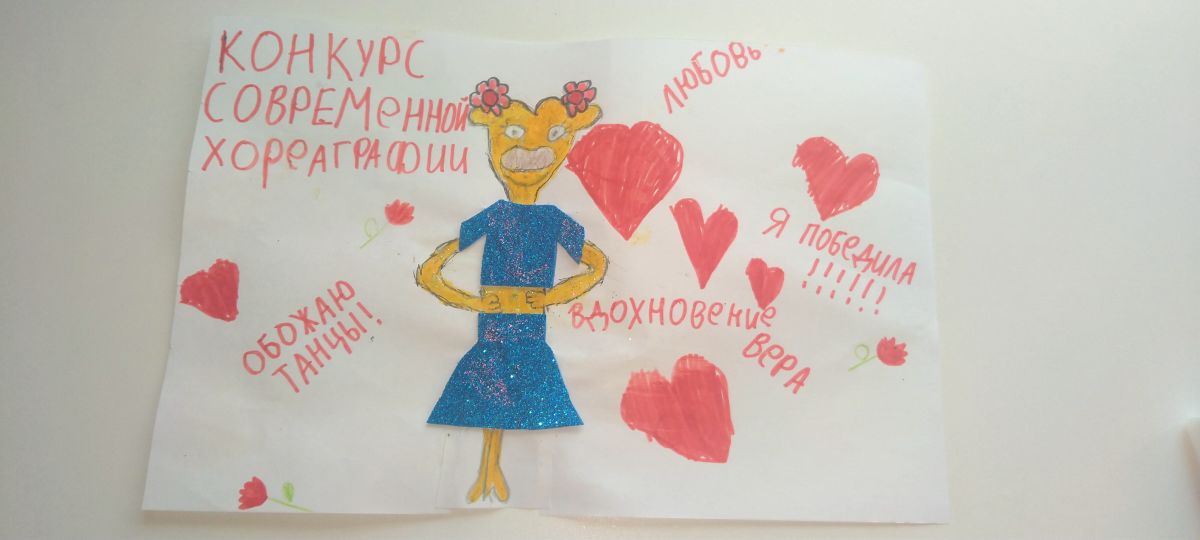 КОНКУРС
СОВРЕМеННОЙ
ХОРеАГРАФИИ
ЛЮБОВЬ
Я ПОБеДИЛА
!!!!!!
ОБОЖАЮ
ТАНЦЫ!
ВДОХНОВеНИе
ВеРА